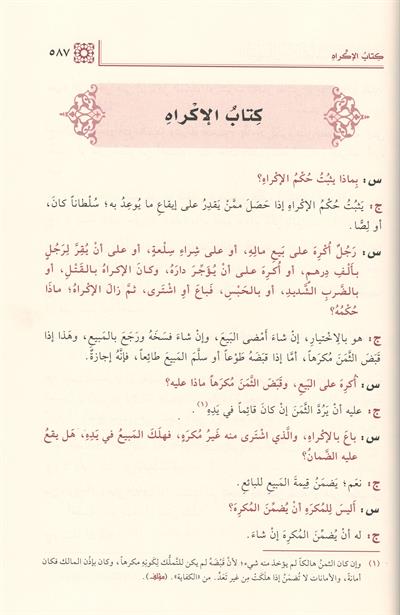 كتابُ الإكراهِ
٥٨٧
كِتابُ الإكْراهِ
س: بِماذا يثبُتُ حُكْمُ الإكْراهِ؟
ج: يَثبُتُ حُكْمُ الإكْراهِ إذا حَصَلَ ممَّنْ يَقدِرُ على إيقاعِ ما يُوعِدُ به؛ سُلْطاناً كانَ،
أو لِصًّا.
س: رَجُلٌ أُكْرِهَ على بَيعِ مالِهِ، أو على شِراءِ سِلْعةٍ، أو على أنْ يُقِرَّ لِرَجُلٍ
بـألـفِ درهـمٍ، أو أُكْرِهَ علـى أنْ يُـؤَجِّرَ دارَهُ، وكـانَ الإكـراهُ بـالـقَـتْلِ، أو
بالضَّربِ الشَّديدِ، أو بالحَبْسِ، فَباعَ أوِ اشْتَرى، ثمَّ زالَ الإكراهُ؛ ماذا
حُكْمُهُ؟
ج: هو بالاِخْتيارِ، إنْ شاءَ أمْضى البَيعَ، وإنْ شاءَ فسَخَهُ ورَجَعَ بالمَبيعِ، وهَذا إذا
قَبَضَ الثَّمَنَ مُكرَهاً، أمَّا إذا قبَضَهُ طَوْعاً أو سلَّمَ المَبيعَ طائِعاً، فإنَّهُ إجازةٌ.
س: أُكرِهَ على البَيعِ، وقَبَضَ الثَّمَنَ مُكرَهاً ماذا عليه؟
ج: عليه أنْ يَرُدَّ الثَّمَنَ إنْ كانَ قائِماً في يَدِهِ(١).
س: باعَ بالإكْراهِ، والَّذي اشْتَرى منه غَيرُ مُكرَهٍ، فهلَكَ المَبيعُ في يَدِهِ، هَل يقعُ
عليه الضَّمانُ؟
ج: نعَم؛ يَضمَنُ قِيمةَ المَبيعِ للبائِعِ.
س: أليسَ لِلمُكرَهِ أنْ يُضمِّنَ المُكرِهَ؟
ج: له أنْ يُضمِّنَ المُكرِهَ إنْ شاءَ.
(١) وإن كان الثمنُ هالكاً لم يؤخذ منه شيء؛ لأنَّ قَبْضَهُ لم يكن للتَّملُّك لِكَونِهِ مكرهاً، وكان بإذْن المالك فكان
أمانةً، والأمانات لا تُضمَنُ إذا هلَكَتْ مِن غَيرِ تَعدٍّ. من «الكفاية». (مؤلف).